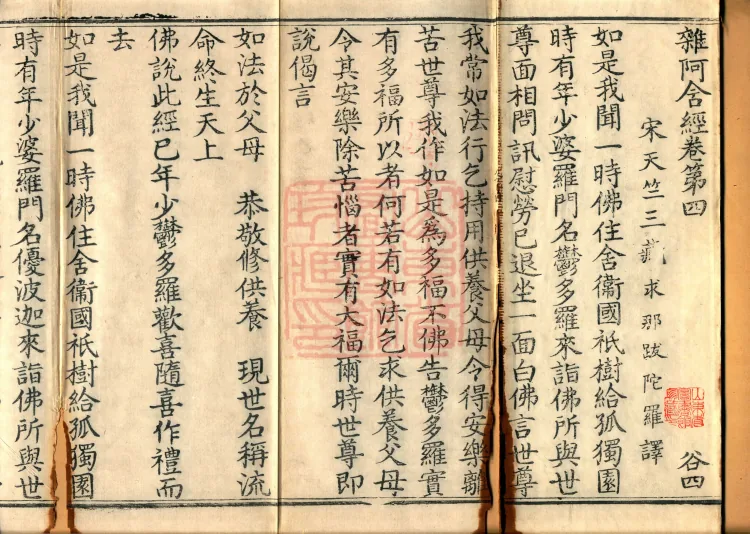 雜阿含經卷第四
谷四
宋天竺三藏求那跋陀羅譯
如是我聞一時佛住舍衞國祇樹給孤獨園
時有年少婆羅門名鬱多羅來詣佛所與世
尊面相問訊慰勞已退坐一面白佛言世尊
我常如法行乞持用供養父母令得安樂離
苦世尊我作如是為多福不佛告鬱多羅實
有多福所以者何若有如法乞求供養父母
令其安樂除苦惱者實有大福爾時世尊即
說偈言
如法於父母 恭敬修供養 現世名稱流
命終生天上
佛說此經已年少鬱多羅歡喜隨喜作禮而
去
如是我聞一時佛住舍衞國祇樹給孤獨園
時有年少婆羅門名優波迦來詣佛所與世